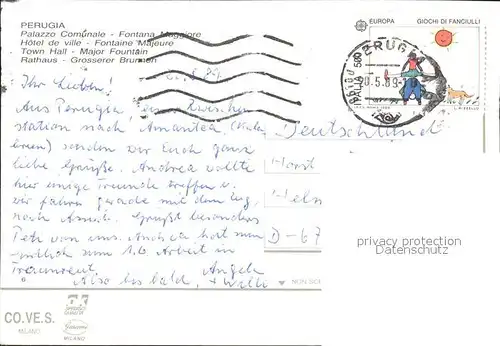 PERUGIA
Palazzo Comunale - Fontana Maggiore
Hôtel de ville - Fontaine Majeure
Town Hall - Major Fountain
Rathaus - Grosserer Brunnen
EUROPA GIOCHI DI FANCIULLI
ITALIA 500
PERUGIA
Ihr Lieben!
Aus Perugia, einer Zwischen
station nach Amantea
senden wir Euch ganz
liebe Grüße. Andrea wollte
hier einige Freunde treffen u.
wir fahren gerade mit dem Zug
nach Grüßt besonders
von uns. hat nun
zum 1.6. Arbeit in
Angela
Also bis bald, + Willi
Deutschland
Horst
Helm
D-67
privacy protection
Datenschutz
6
NON SC
CO.VE.S.
MILANO
MILANO